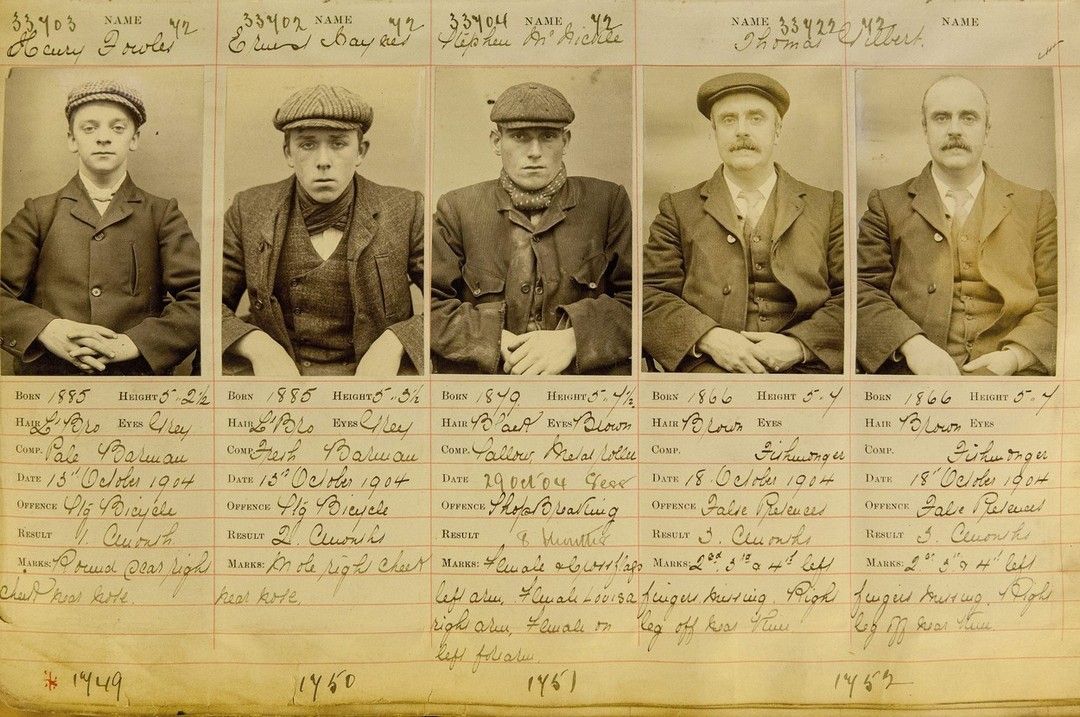 33703 NAME 72
Henry Fowles
33702 NAME 72
Ernest Haynes
33704 NAME 72
Stephen Mc Nickle
NAME 33722 72
Thomas Gilbert.
NAME
BORN 1885 HEIGHT 5-2½
HAIR Lt Bro EYES Grey
COMP. Pale Barman
DATE 13th October 1904
OFFENCE Stg Bicycle
RESULT 1 Cmonth
MARKS: Round scar right
cheek near nose.
BORN 1885 HEIGHT 5-3½
HAIR Lt Bro EYES Grey
COMP. Fresh Barman
DATE 13th October 1904
OFFENCE Stg Bicycle
RESULT 2 Cmonths
MARKS: Mole right cheek
near nose.
BORN 1879 HEIGHT 5-4½
HAIR Black EYES Brown
COMP. Sallow, Metal roller
DATE 29 Oct 04 Sess
OFFENCE Shop Breaking
RESULT 8 months
MARKS: Female & Cross flags
left arm, Female Louisa
right arm, Female on
left forearm.
BORN 1866 HEIGHT 5-4
HAIR Brown EYES
COMP. Fishmonger
DATE 18 October 1904
OFFENCE False Pretences
RESULT 3. Cmonths
MARKS: 2nd, 3rd & 4th left
fingers missing. Right
leg off near knee
BORN 1866 HEIGHT 5-4
HAIR Brown EYES
COMP. Fishmonger
DATE 18th October 1904
OFFENCE False Pretences
RESULT 3. Cmonths
MARKS: 2nd 3rd & 4th left
fingers missing. Right
leg off near knee.
* 1749
1750
1751
1752